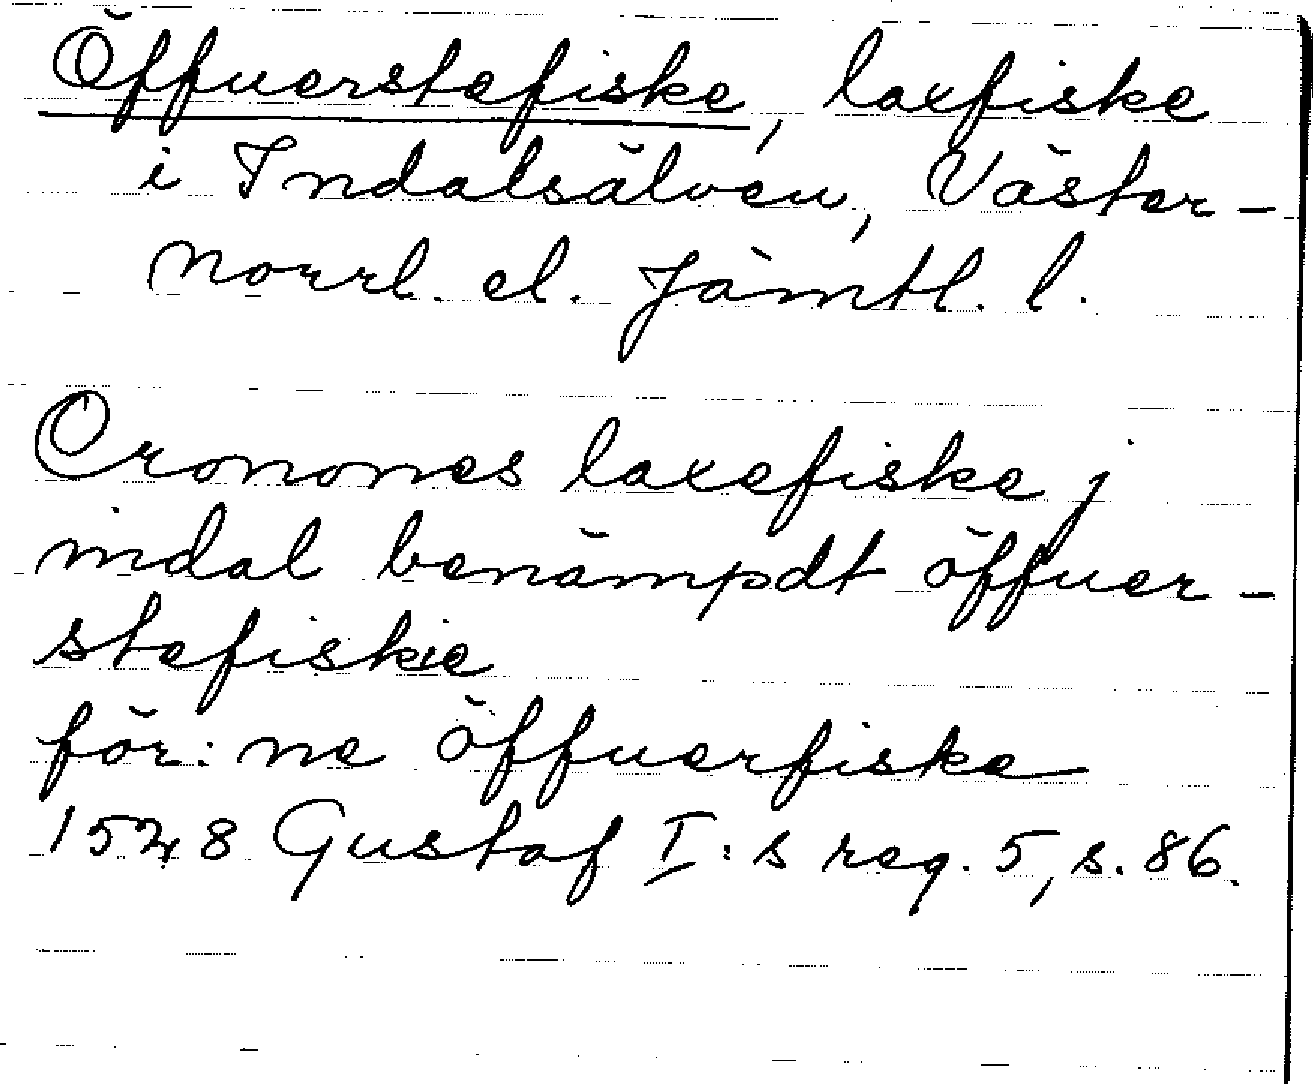 Öffuerstefiske, laxfiske
i Indalsälven, Väster-
norrl. el. Jämtl. l.
Crononnes laxefiske j
indal benämpdt öffuer-
stefiske
för: ne öffuerfiske
1528 Gustaf I:s reg. 5, s. 86.